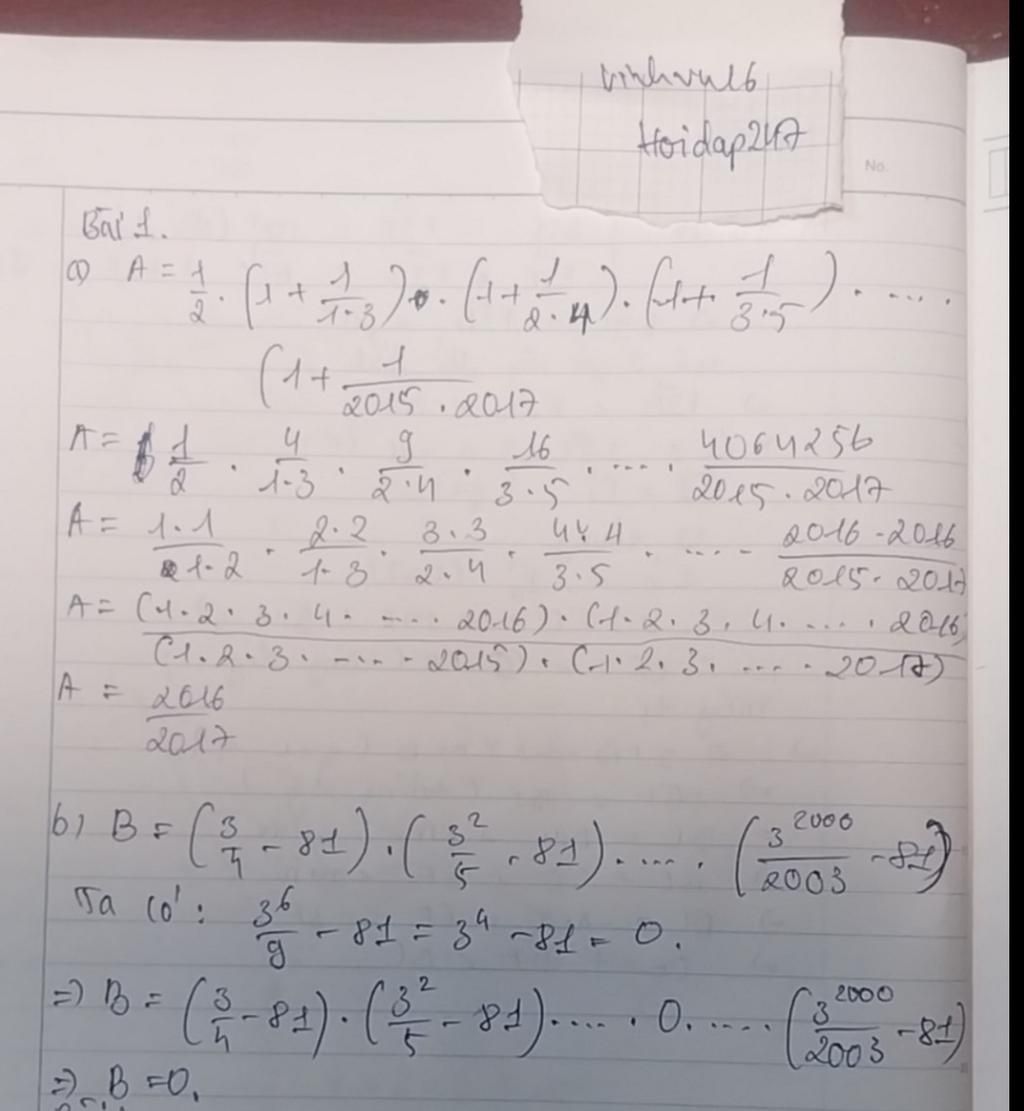 vinhvu16
Hoidap247
No.
Bài 1.
a) A = 1/2 . (1 + 1/1.3) . (1 + 1/2.4) . (1 + 1/3.5) . ....
(1 + 1/2015.2017
A = 1/2 . 4/1.3 . 9/2.4 . 16/3.5 . .... . 4064256/2015.2017
A = 1.1/1.2 . 2.2/1.3 . 3.3/2.4 . 4.4/3.5 . .... . 2016.2016/2015.2017
A = (1.2.3.4. .... 2016) . (1.2.3.4. .... . 2016/(1.2.3. .... . 2015) . (1.2.3. .... . 2017)
A = 2016/2017
b) B = (3/4 - 81) . (3²/5 - 81) . .... . (3²⁰⁰⁰/2003 - 81)
Ta có: 3⁶/9 - 81 = 3⁴ - 81 = 0.
=> B = (3/4 - 81) . (3²/5 - 81) . .... . 0 . .... (3²⁰⁰⁰/2003 - 81)
=> B = 0.